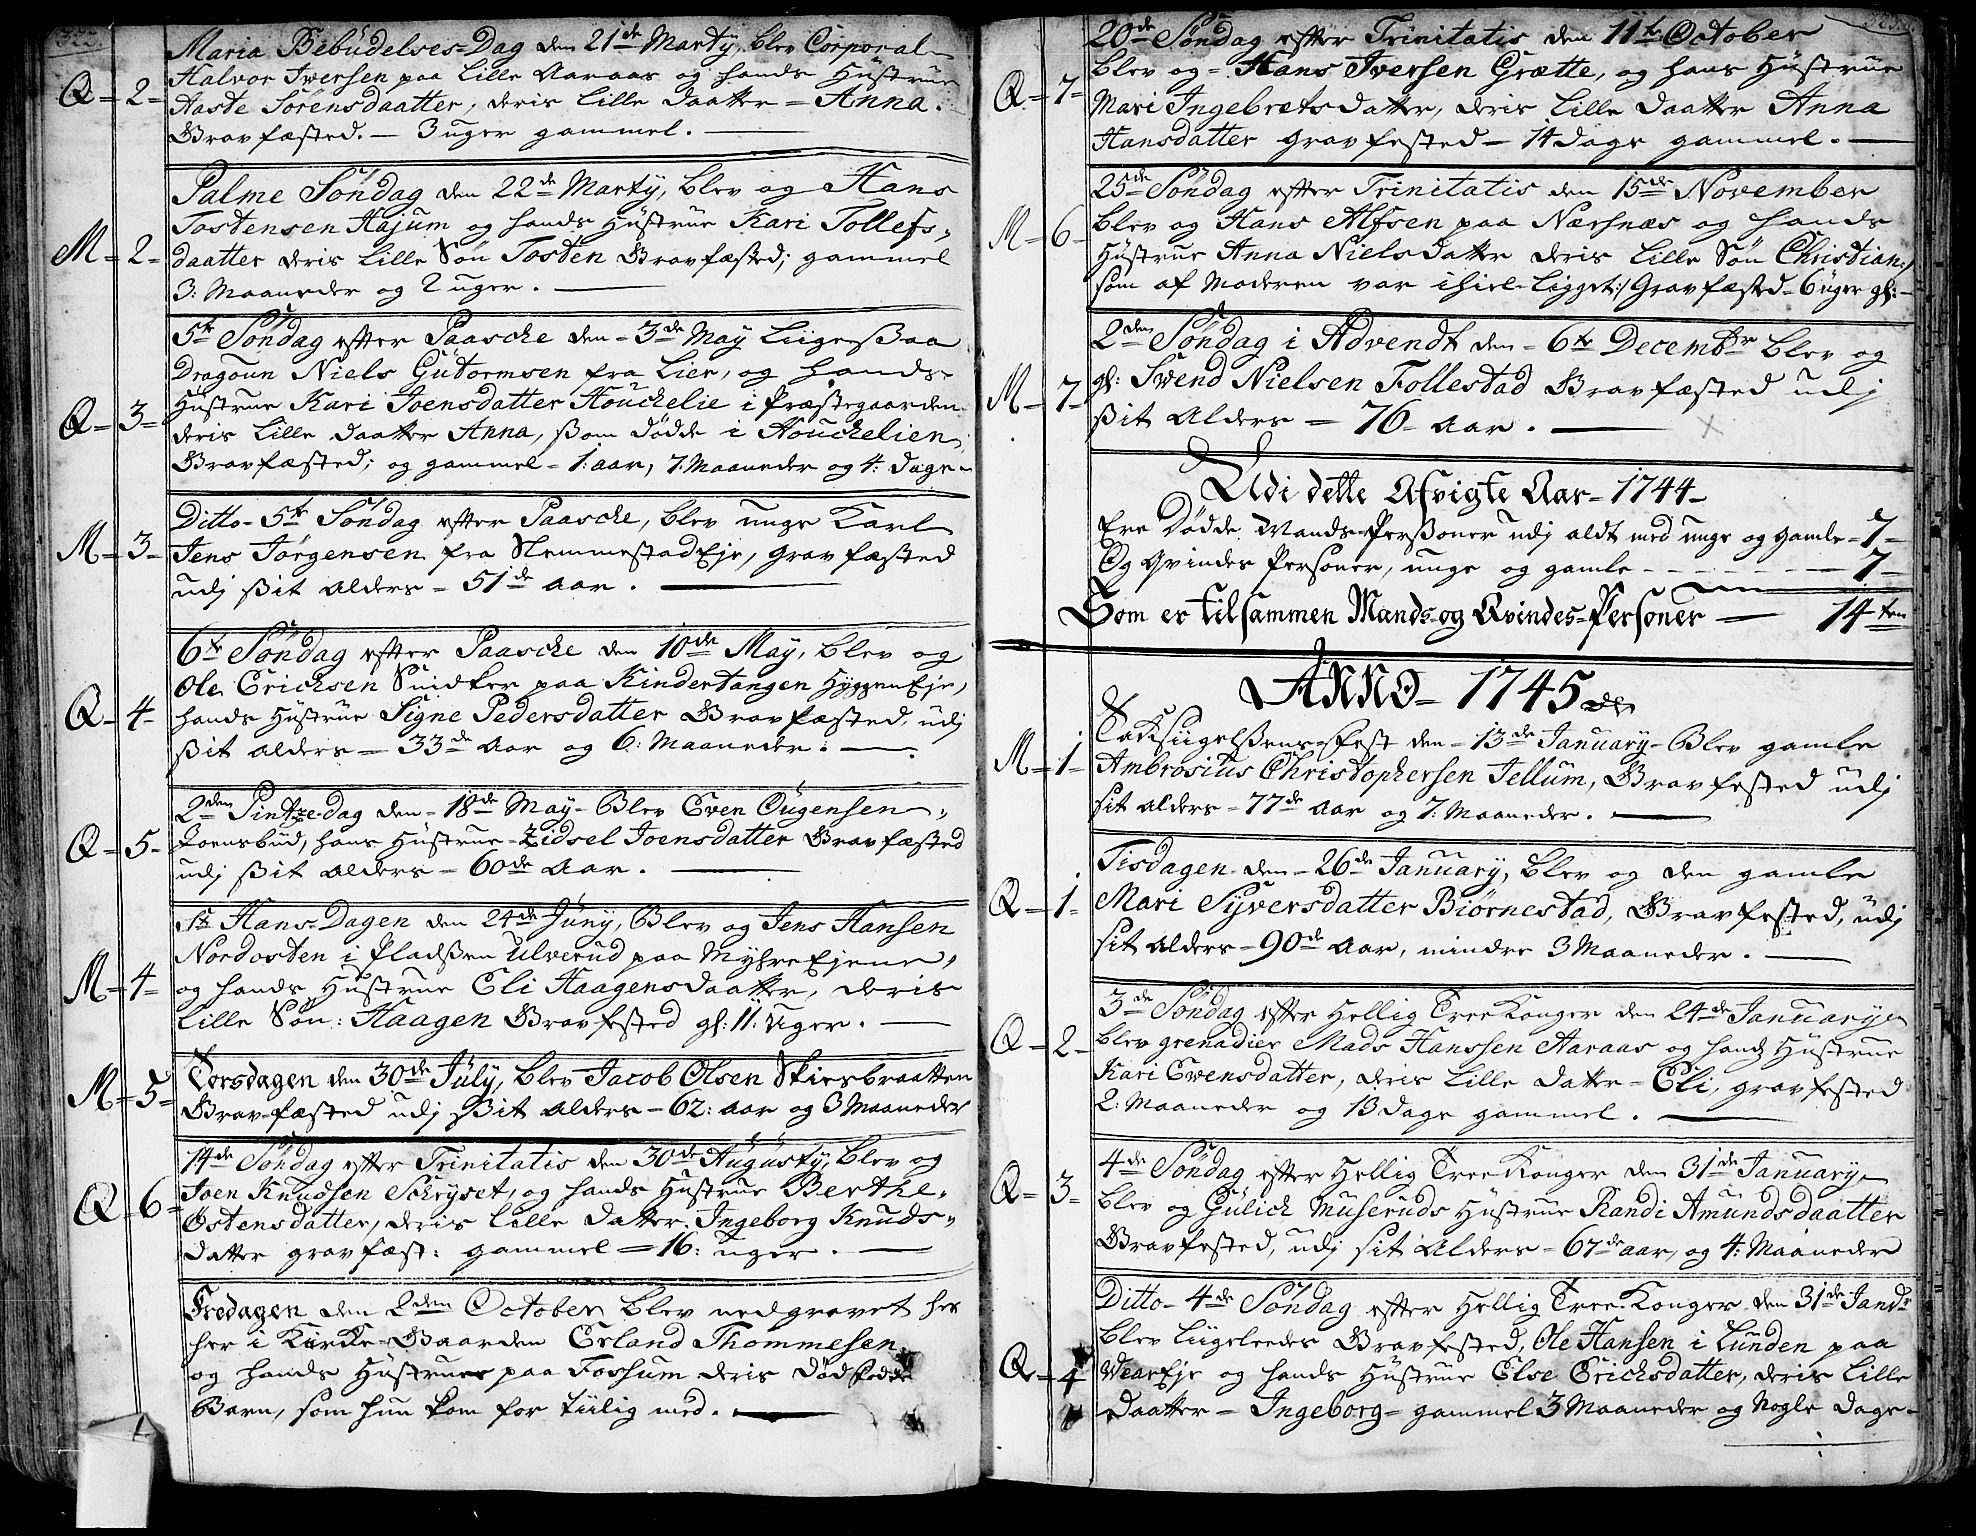 322
Maria Bebudelses-Dag den 21de Martÿ, blev Corporal
Halvor Iversen paa Lille Aaraas og hands Hustrue
Q = 2 = Aaste Sörensdaatter, deris lille daatter = Anna.
Gravfæsted. - 3 uger gammel.
Palme Söndag den 22de Martÿ, blev og Hans
Tostensen Hajum og hands Hustrue Kari Tollefs,,
M = 2 = daatter deris lille Sön Tosten Gravfæsted; gammel
3: Maaneder og 2 uger.
5te Söndag efter Paasche den = 3de May liigesßaa
Dragoun Niels Gutormsen fra Lier, og hands
Hustrue Kari Joensdatter Houchelie i Præstegaarden
Q = 3 = deris lille daatter Anna, ßom dödde i Houchelien,
Gravfæsted; og gammel = 1: aar, 7: Maaneder og 4: dage
Ditto - 5te Söndag efter Paasche, blev unge Karl
M = 3 = Jens Jörgensen fra Slemmestad Eje, gravfæsted
udj ßit alders = 51de aar.
6te Söndag efter Paasche den 10de May, blev og
Ole Erichsen Snidker paa Kindertangen Hyggen Eje,
Q = 4 = hands Hustrue Signe Pedersdatter Gravfæsted, udj
ßit alders = 33de Aar og 6: Maaneder.
2den Pintze-dag den = 18de May - Blev Even Ougensen
Q = 5 = Joensbud, hans Hustrue = Zidsel Joensdatter Gravfæsted
udj ßit alders = 60de Aar.
St Hans-Dagen den 24de Junÿ, Blev og Jens Hansen
Nordosten i Pladßen Ulverud paa Myhre Ejene,
M = 4 = og hands Hustrue Eli Haagensdaatter, deris
lille Sön: Haagen Gravfested gl: 11: uger.
Torsdagen den 30de Julÿ, blev Jacob Olsen Skiersbraatten
M = 5 = Gravfæsted udj ßit alders = 62: aar og 3 Maaneder
14de Söndag efter Trinitatis den 30de Augustÿ, blev og
Joen Knudsen Schryset, og hands Hustrue Berthe
Q = 6 = Östensdatter, deris lille datter. Ingeborg Knuds,,
datter gravfæst: gammel = 16: uger.
Fredagen den 2den October blev nedgravet her
her i Kirke-Gaarden Erland Thommesen
og hands Hustrues paa Fossum deris Död födde
Barn, som hun kom for tiilig med.
20de Söndag efter Trinitatis den 11te October
blev og = Hans Iversen Grætte, og hans Hustrue
Q = 7 = Mari Ingebretsdatter, deris lille daatter Anna
Hansdatter gravfested = 14 dage gammel.
25de Söndag efter Trinitatis den 15de November
M = 6 = blev og Hans Alfsen paa Nærsnæs og hands
Hustrue Anna Nielsdatter deris lille Sön Christian:/
som af Moderen var ihiel-ligget:/ Gravfæsted = 6 uger gl:
2den Söndag i Advendt den = 6te Decembr blev og
M = 7 = gl: Svend Nielsen Follestad Gravfæsted udj
ßit alders = 76 = aar.
Udi dette Afvigte Aar = 1744
Ere Dödde Mands-Perßoner udj aldt med unge og gamle = 7 =
Og Qvindes Personer, unge og gamle - - - - - 7 =
Som er tilsammen Mands- og Qvindes-Personer — 14ten
ANNO = 1745
Taksiigelßens-Fest den = 13de January - Blev gamle
M = 1 = Ambrosius Christophersen Jellum, Gravfested udj
sit alders = 77de aar og 7: Maaneder.
Tisdagen den = 26de January, blev og den gamle
Q = 1 = Mari Syversdatter Biörnestad, Gravfested, udj
sit alders = 90de aar, mindre 3 Maaneder.
3de Söndag efter Hellig Tree Konger den 24de January
Q = 2 = blev grenadier Mads Hanssen Aaraas og hands Hustrue
Kari Evensdatter, deris lille datter = Eli, gravfested
2: Maaneder og 13 dage gammel.
4de Söndag efter Hellig Tree Konger den 31de January
Q = 3 = blev og Gulich Museruds Hustrue Randi Amundsdaatter
Gravfested, udj sit Alders = 67de aar, og 4: Maaneder
Ditto = 4de Söndag efter Hellig Tree Konger den 31de Jandr
blev liigeleedes Gravfested, Ole Hansen i Lunden paa
Q = 4 Wear Eje og hands Hustrue Else Erichsdatter, deris lille
daatter = Ingeborg = gammel 3 Maaneder og nogle dage